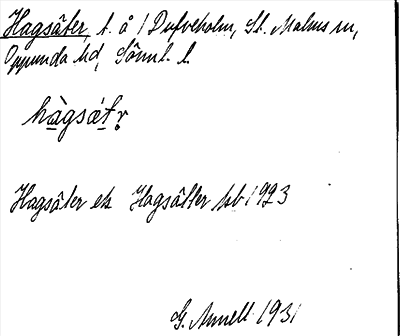 Hagsäter t. å 1 Dufveholm, St. Malms sn,
Oppunda hd, Sörml. l.
hàgsǻtr
Hagsäter el. Hagsätter kb 1923
G. Annell 1931